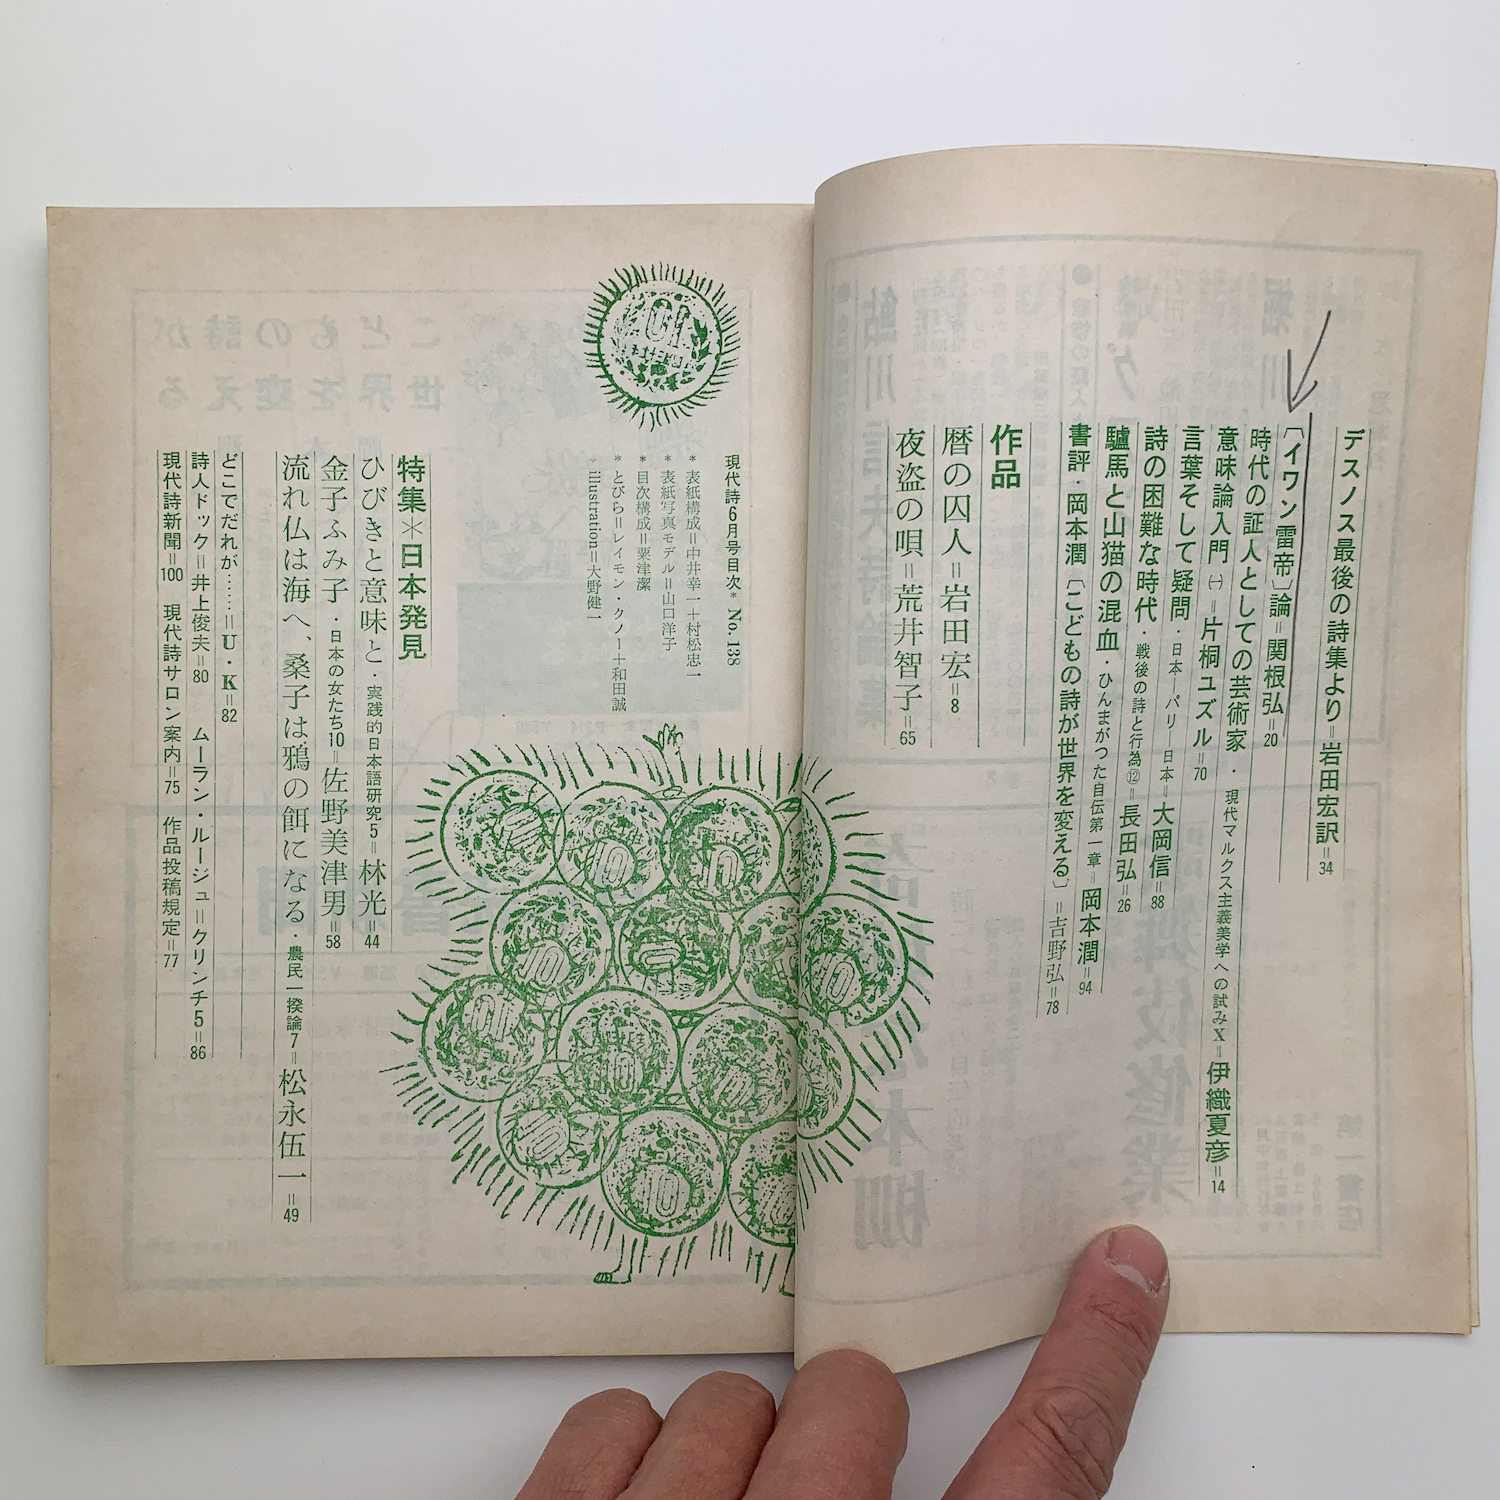 デスノス最後の詩集より＝岩田宏訳＝34
〔イワン雷帝〕論＝関根弘＝20
時代の証人としての芸術家・現代マルクス主義美学への試みX＝伊織夏彦＝14
意味論入門㈠＝片桐ユズル＝70
言葉そして疑問・日本—パリ—日本＝大岡信＝88
詩の困難な時代・戦後の詩と行為⑫＝長田弘＝26
驢馬と山猫の混血・ひんまがつた自伝第一章＝岡本潤＝94
書評・岡本潤〔こどもの詩が世界を変える〕＝吉野弘＝78
作品
暦の囚人＝岩田宏＝8
夜盗の唄＝荒井智子＝65
現代詩6月号目次* No. 138
*表紙構成＝中井幸一＋村松忠一
*表紙写真モデル＝山口洋子
*目次構成＝粟津潔
*とびら＝レイモン・クノー＋和田誠
*illustration＝大野健一
特集＊日本発見
ひびきと意味と・実践的日本語研究5＝林光＝44
金子ふみ子・日本の女たち10＝佐野美津男＝58
流れ仏は海へ、桑子は鴉の餌になる・農民一揆論7＝松永伍一＝49
どこでだれが……＝U・K＝82
詩人ドック＝井上俊夫＝80　ムーラン・ルージュ＝クリンチ5＝86
現代詩新聞＝100　現代詩サロン案内＝75　作品投稿規定＝77